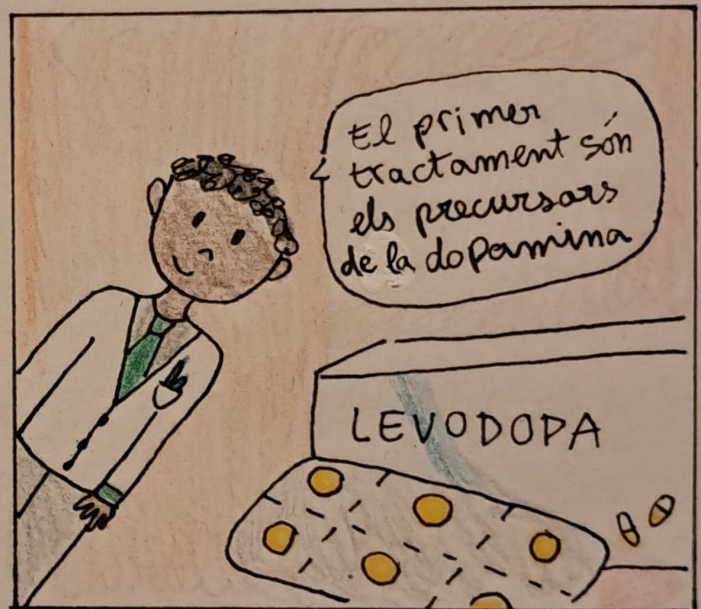 El primer
tractament són
els precursors
de la dopamina
LEVODOPA